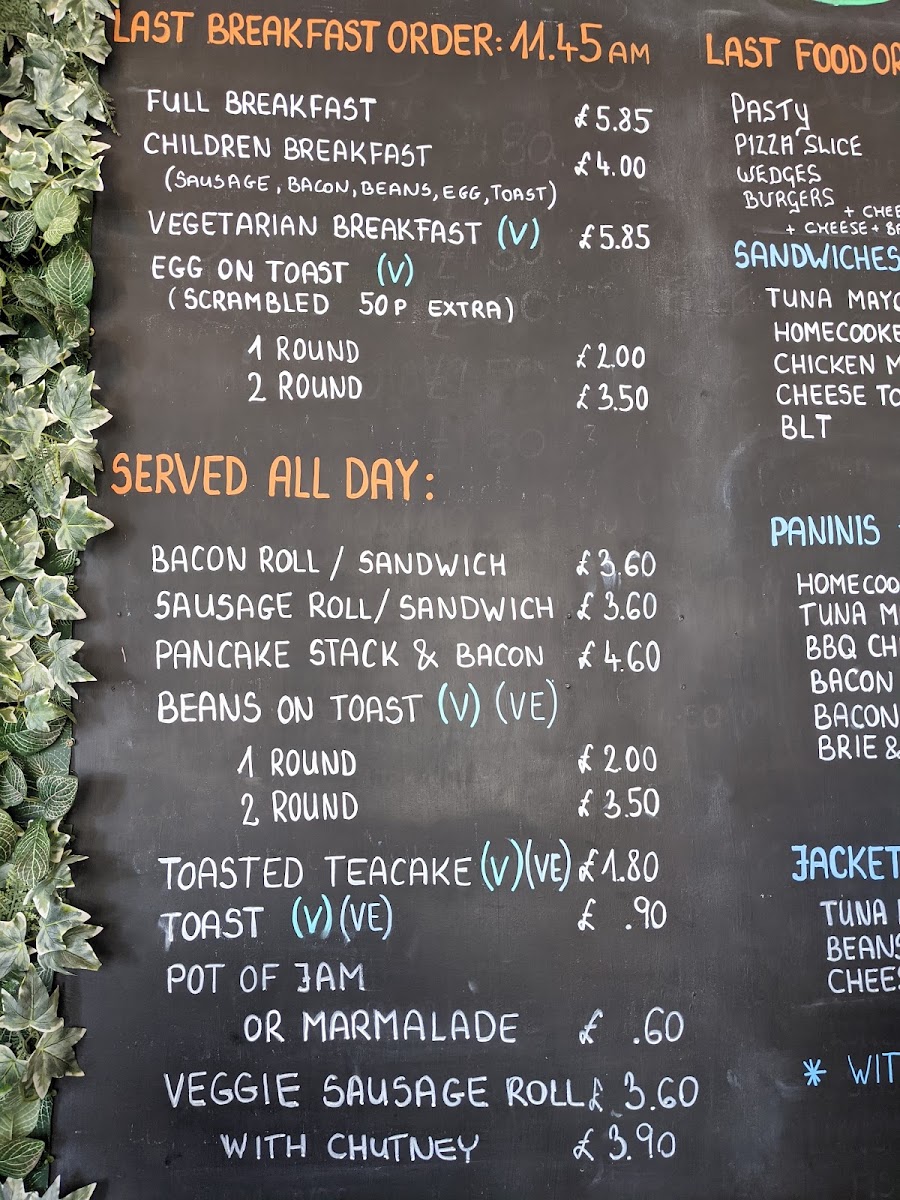 LAST BREAKFAST ORDER: 11.45 AM
FULL BREAKFAST £5.85
CHILDREN BREAKFAST £4.00
(SAUSAGE, BACON, BEANS, EGG, TOAST)
VEGETARIAN BREAKFAST (V) £5.85
EGG ON TOAST (V)
(SCRAMBLED 50P EXTRA)
1 ROUND £2.00
2 ROUND £3.50
SERVED ALL DAY:
BACON ROLL / SANDWICH £3.60
SAUSAGE ROLL / SANDWICH £3.60
PANCAKE STACK & BACON £4.60
BEANS ON TOAST (V) (VE)
1 ROUND £2.00
2 ROUND £3.50
TOASTED TEACAKE (V)(VE) £1.80
TOAST (V)(VE) £ .90
POT OF JAM
OR MARMALADE £ .60
VEGGIE SAUSAGE ROLL £3.60
WITH CHUTNEY £3.90
LAST FOOD
PASTY
PIZZA SLICE
WEDGES
BURGERS
+ CHEE
+ CHEESE +
SANDWICHES
TUNA MAYO
HOMECOOKE
CHICKEN M
CHEESE TO
BLT
PANINIS
HOMECOO
TUNA M
BBQ CH
BACON
BACON
BRIE &
JACKET
TUNA
BEANS
CHEES
* WIT